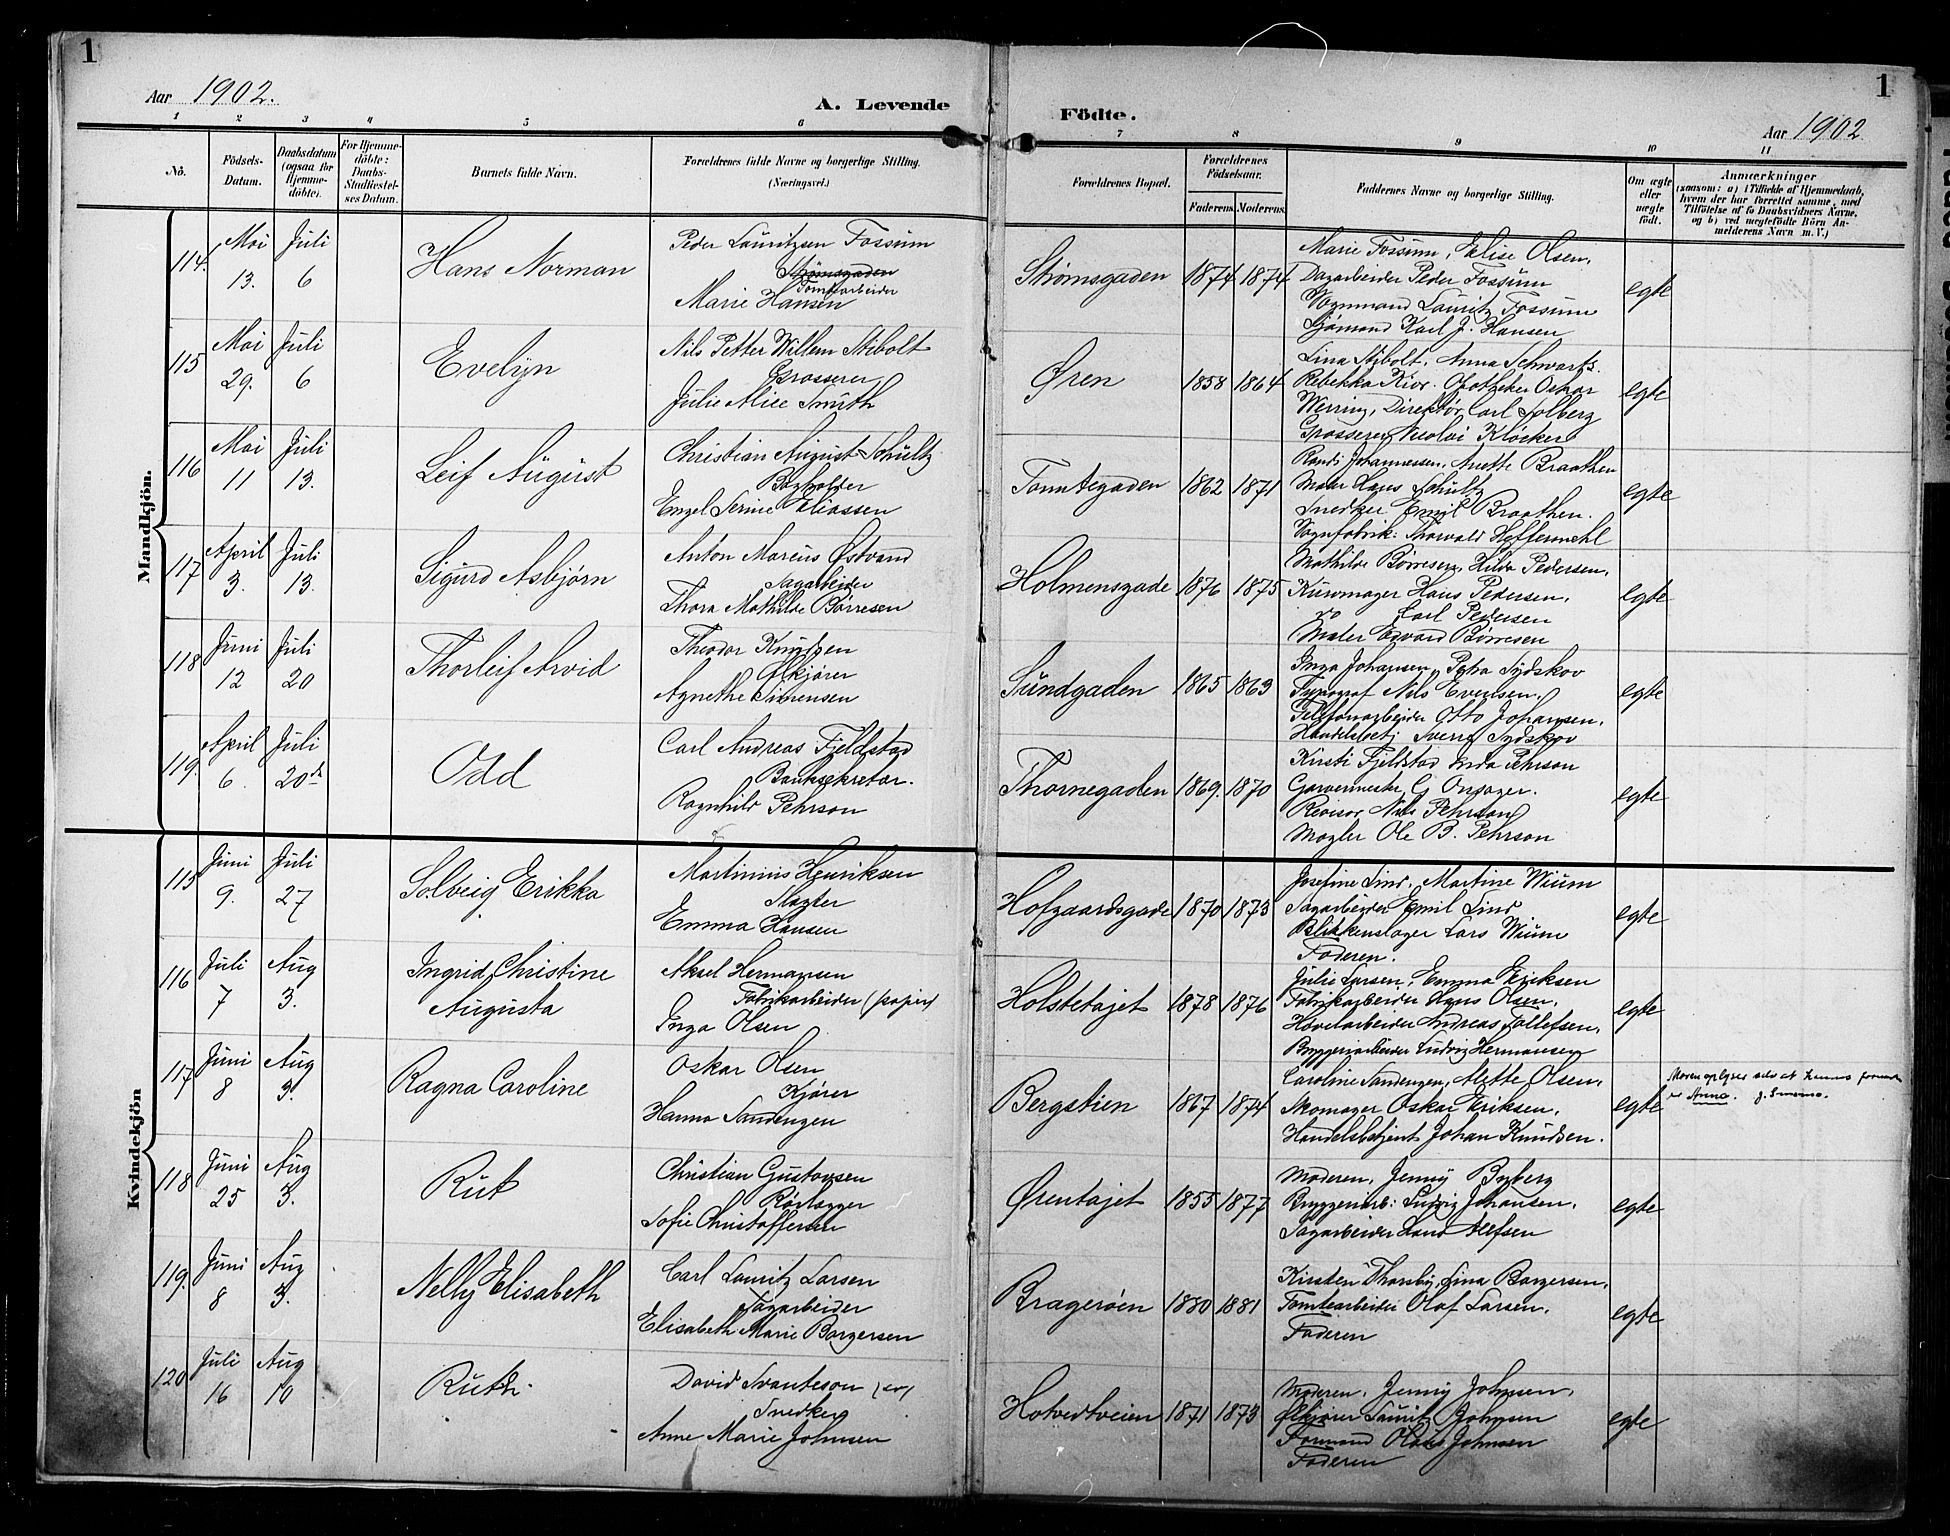 1
Aar 1902.
A. Levende
Födte.
Aar 1902
1
1 2 3 4 5 6 7 8 9 10 11
No.
Födsels-Datum.
Daabsdatum (ogsaa for Hjemmedöbte).
For Hjemmedöbte: Daabs-Stadfæstelses Datum.
Barnets fulde Navn.
Forældrenes fulde Navne og borgerlige Stilling. (Næringsvei.)
Forældrenes Bopæl.
Forældrenes Födselsaar.
Faderens. Moderens.
Faddernes Navne og borgerlige Stilling.
Om ægte eller uægte födt.
Anmærkninger (saasom: a) i Tilfælde af Hjemmedaab, hvem der har forrettet samme, med Tilföielse af to Daabsvidners Navne, og b) ved uægtefödte Börn Anmelderens Navn m. V.)
Mandkjön.
114. Mai 13. Juli 6
Hans Norman
Peder Lauritzen Fossum
Strømsgaden
Tomtearbeider
Marie Hansen
Strømsgaden 1874 1874
Marie Fossum, Elise Olsen,
Dagarbeider Peder Fossum
Vognmand Lauritz Fossum
Sjømand Karl J. Hansen
egte
115 Mai 29. Juli 6
Evelyn
Nils Petter Willem Stibolt
Grosserer
Julie Alice Smith
Øren 1858 1864
Lina Stibolt, Anna Schwartz.
Rebekka Kiær. Apotheker Oskar
Werring, Direktør Carl Solberg
Grosserer Nicolai Kløcker
egte
116 Mai 11 Juli 13.
Leif August
Christian August Schultz
Bogholder
Engel Serine Eliassen
Tomtegaden 1862 1871
Randi Johannessen, Anette Braathen
Maler Hans Schultz
Snedker Emil Braathen.
Vognfabrik: Thorvald Heffermehl
egte
117 April 3. Juli 13.
Sigurd Asbjørn
Anton Marcus Østvand
Sagarbeider
Thora Mathilde Børresen
Holmensgade 1876 1875
Mathilde Børresen, Hilda Pedersen,
Kurvmager Hans Pedersen,
do Carl Pedersen
Maler Edvard Børresen
egte
118 Juni 12 Juli 20
Thorleif Arvid
Theodor Knutzen
Ølkjører
Agnethe Simensen
Sundgaden 1865 1863
Inga Johansen, Petra Sydskov
Typograf Nils Evensen,
Telefonarbeider Otto Johansen,
Handelsbetj Sverre Sydskov
egte
119. April 6. Juli 20de
Odd
Carl Andreas Fjeldstad
Banksekretær.
Ragnhild Pehrson
Thornegaden 1869. 1870
Kirsti Fjeldstad Inda Pehrson
Garvermester G Onsager.
Revisor Nils Pehrson
Mægler Ole B. Pehrson
egte
Kvindekjön
115 Juni 9. Juli 27
Solveig Erikka
Martinius Henriksen
Slagter
Emma Hansen
Hofgaardsgade 1870 1873
Josefine Lind, Martine Wium
Sagarbeider Emil Lind
Blikkenslager Lars Wium
Faderen.
egte
116 Juli 7 Aug 3.
Ingrid Christine
Augusta
Aksel Hermansen
Fabrikarbeider (papir)
Inga Olsen
Holstetajet 1878 1876
Julie Larsen, Emma Eriksen
Fabrikarbeider Hans Olsen,
Høvelarbeider Andreas Tollefsen,
Bryggeriarbeider Ludvig Hermansen
egte
117 Juni 8 Aug 3.
Ragna Caroline
Oskar Olsen
Kjører
Hanna Sandengen
Bergstien 1867 1874
Caroline Sandengen, Alette Olsen,
Skomager Oskar Eriksen,
Handelsbetjent Johan Knudsen.
egte
Moren oplyser selv at hennes fornavn
er Anna.
118 Juni 25 Aug 3.
Rut
Christian Gustavsen
Rørlægger
Sofie Christoffersen
Ørentajet 1855 1877
Moderen, Jenny Byberg
Bryggeriarb: Ludvig Johansen,
Sagarbeider
egte
119. Juni 8 Aug 3.
Nelly Elisabeth
Carl Lauritz Larsen
Sagarbeider
Elisabeth Marie Borgersen
Bragerøen 1880 1881
Kirsten Thorsby, Lina Borgersen,
Tomtearbeider Olaf Larsen,
Faderen
egte
120 Juli 16 Aug 10
Ruth.
David Svanteson
Snedker
Anne Marie Johnsen
Hotvedtveien 1871 1873
Moderen, Jenny Johnsen,
Ølkjører Lauritz Johnsen
Formand Olaus Johnsen
Faderen
egte